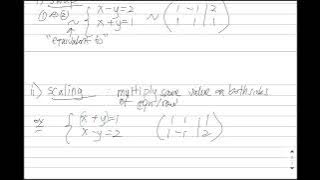 ① ⇔ ② ~ { x-y=2 ~ ( 1 -1 | 2
x+y=1 1 1 | 1 )
"equivalent to"
ii) scaling : multiply some value on both sides
of eqn/row
ex { x+y=1 ( 1 1 | 1
x-y=2 1 -1 | 2 )